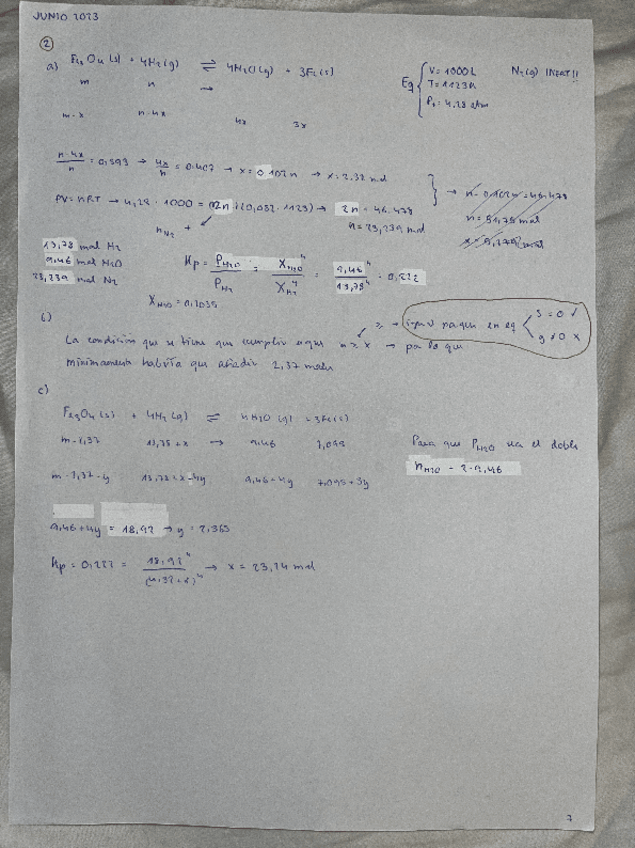 JUNIO 2023
2
a) Fe3O4 (s) + 4H2(g) ⇌ 4H2O(g) + 3Fe(s)
m n →
m-x n-4x 4x 3x
Eq { V = 1000L
T = 1123K
P = 4,28 atm
N2(g) INERT!!
n-4x/n = 0,593 → 4x/n = 0,407 → x = 0,102n → x = 2,37 mol
PV = nRT → 4,28 · 1000 = (2n)(0,082 · 1123) → 2n = 46.478
n = 23,239 mol
nN2 +
13,78 mol H2
9,46 mol H2O
23,239 mol N2
Kp = PH2O / PH2 = XH2O^4 / XH2^4 = 9,46^4 / 13,78^4 = 0,222
XH2O = 0,2035
b)
La condición que se tiene que cumplir es que m ≥ x → por lo que
mínimamente habría que añadir 2,37 moles
c)
Fe3O4 (s) + 4H2 (g) ⇌ 4H2O (g) + 3Fe(s)
13,78 + x → 9,46 7,095
9,46 + 4y 7,095 + 3y
Para que PH2O sea el doble
nH2O = 2·9,46
9,46 + 4y = 18,92 → y = 2,365
Kp = 0,222 = 18,92^4 / (4,32+x)^4 → x = 23,24 mol
7